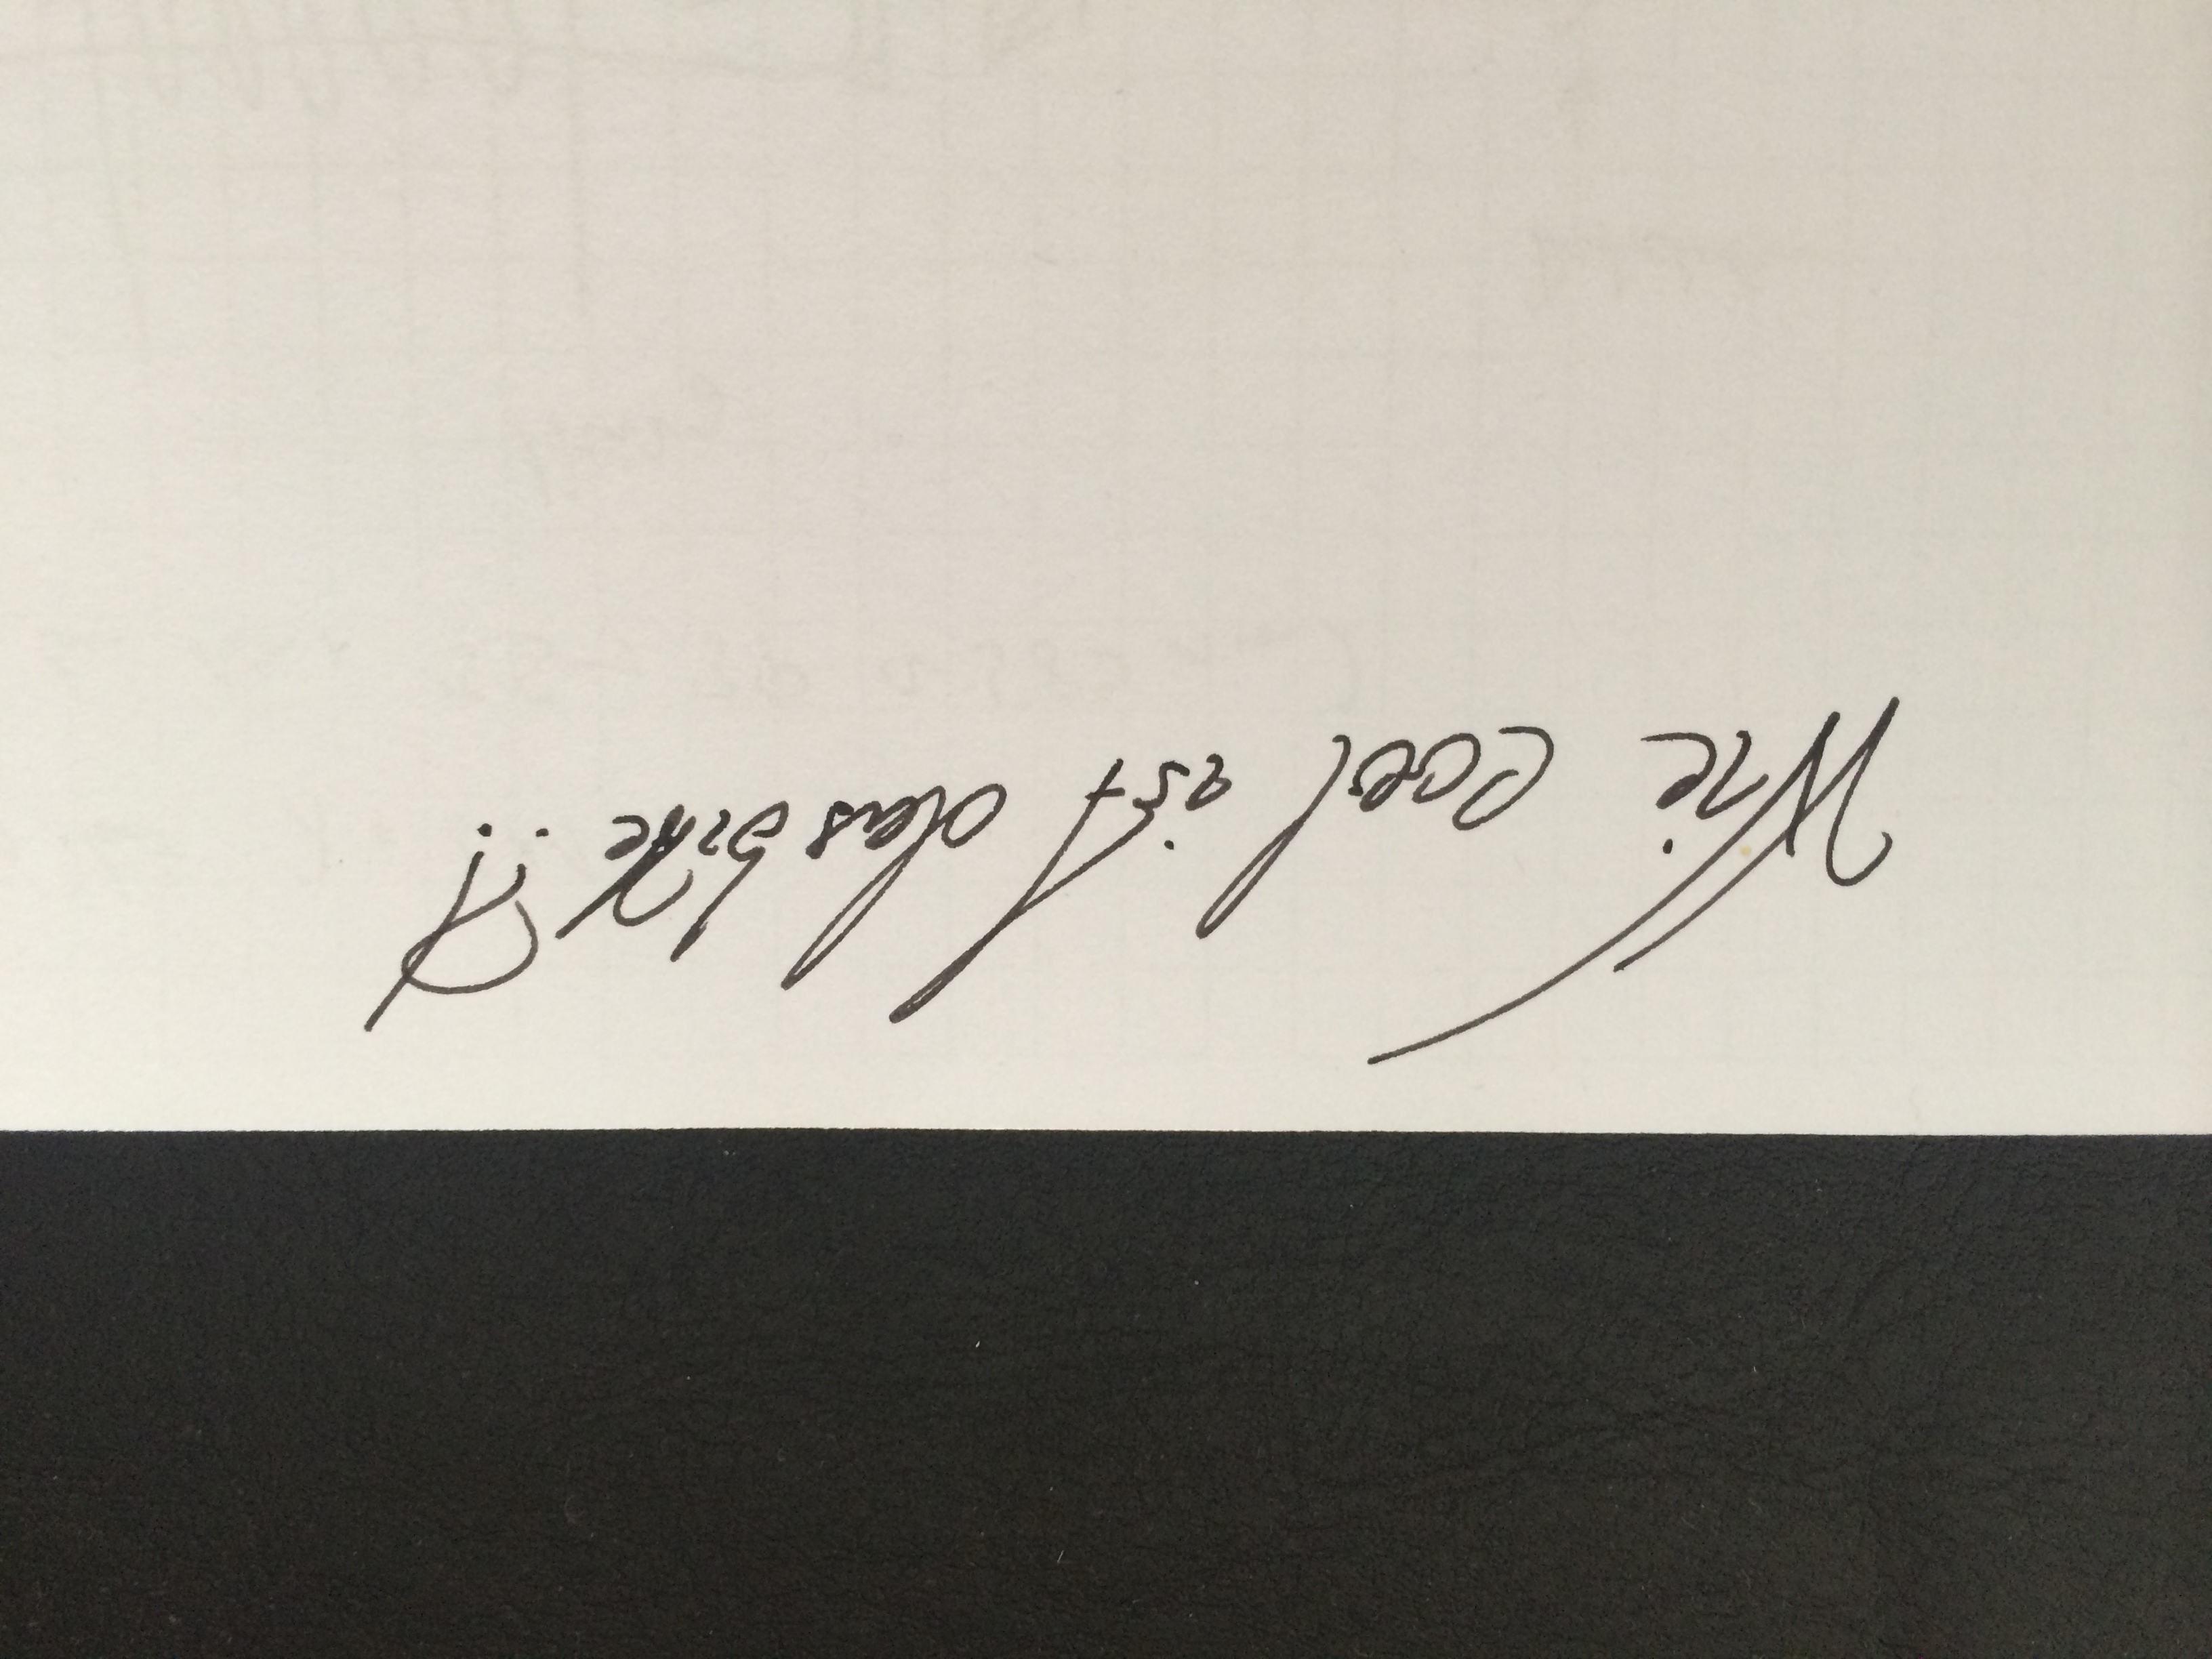 Wie cool ist das bitte?!